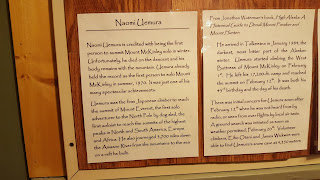 Naomi Uemura
Naomi Uemura is credited with being the first
person to summit Mount McKinley solo in winter.
Unfortunately, he died on the descent and his
body remains with the mountain. Uemura already
held the record as the first person to solo Mount
McKinley in summer, 1970. It was just one of his
many spectacular achievements.
Uemura was the first Japanese climber to reach
the summit of Mount Everest, the first solo
adventurer to the North Pole by dog sled, the
first soloist to reach the summits of the highest
peaks in North and South America, Europe,
and Africa. He also journeyed 3,700 miles down
the Amazon River from the mountains to the sea
on a raft he built.
From Jonathan Waterman's book, High Alaska: A
Historical Guide to Denali Mount Foraker and
Mount Hunter:
He arrived in Talkeetna in January 1984, the
darkest, most bitter part of the Alaskan
winter. Uemura started climbing the West
Buttress of Mount McKinley on February
1st. He left his 17,200-ft camp and reached
the summit on February 12th. It was both his
43rd birthday and the day of his death.
There was initial concern for Uemura soon after
February 13th when he was not heard from by
radio, or seen from over flights by local air taxis.
A ground search was initiated as soon as
weather permitted, February 20th. Volunteer
climbers Eiho Otani and Jannis Wickwire were
able to find Uemura's snow cave at 9,150 meters